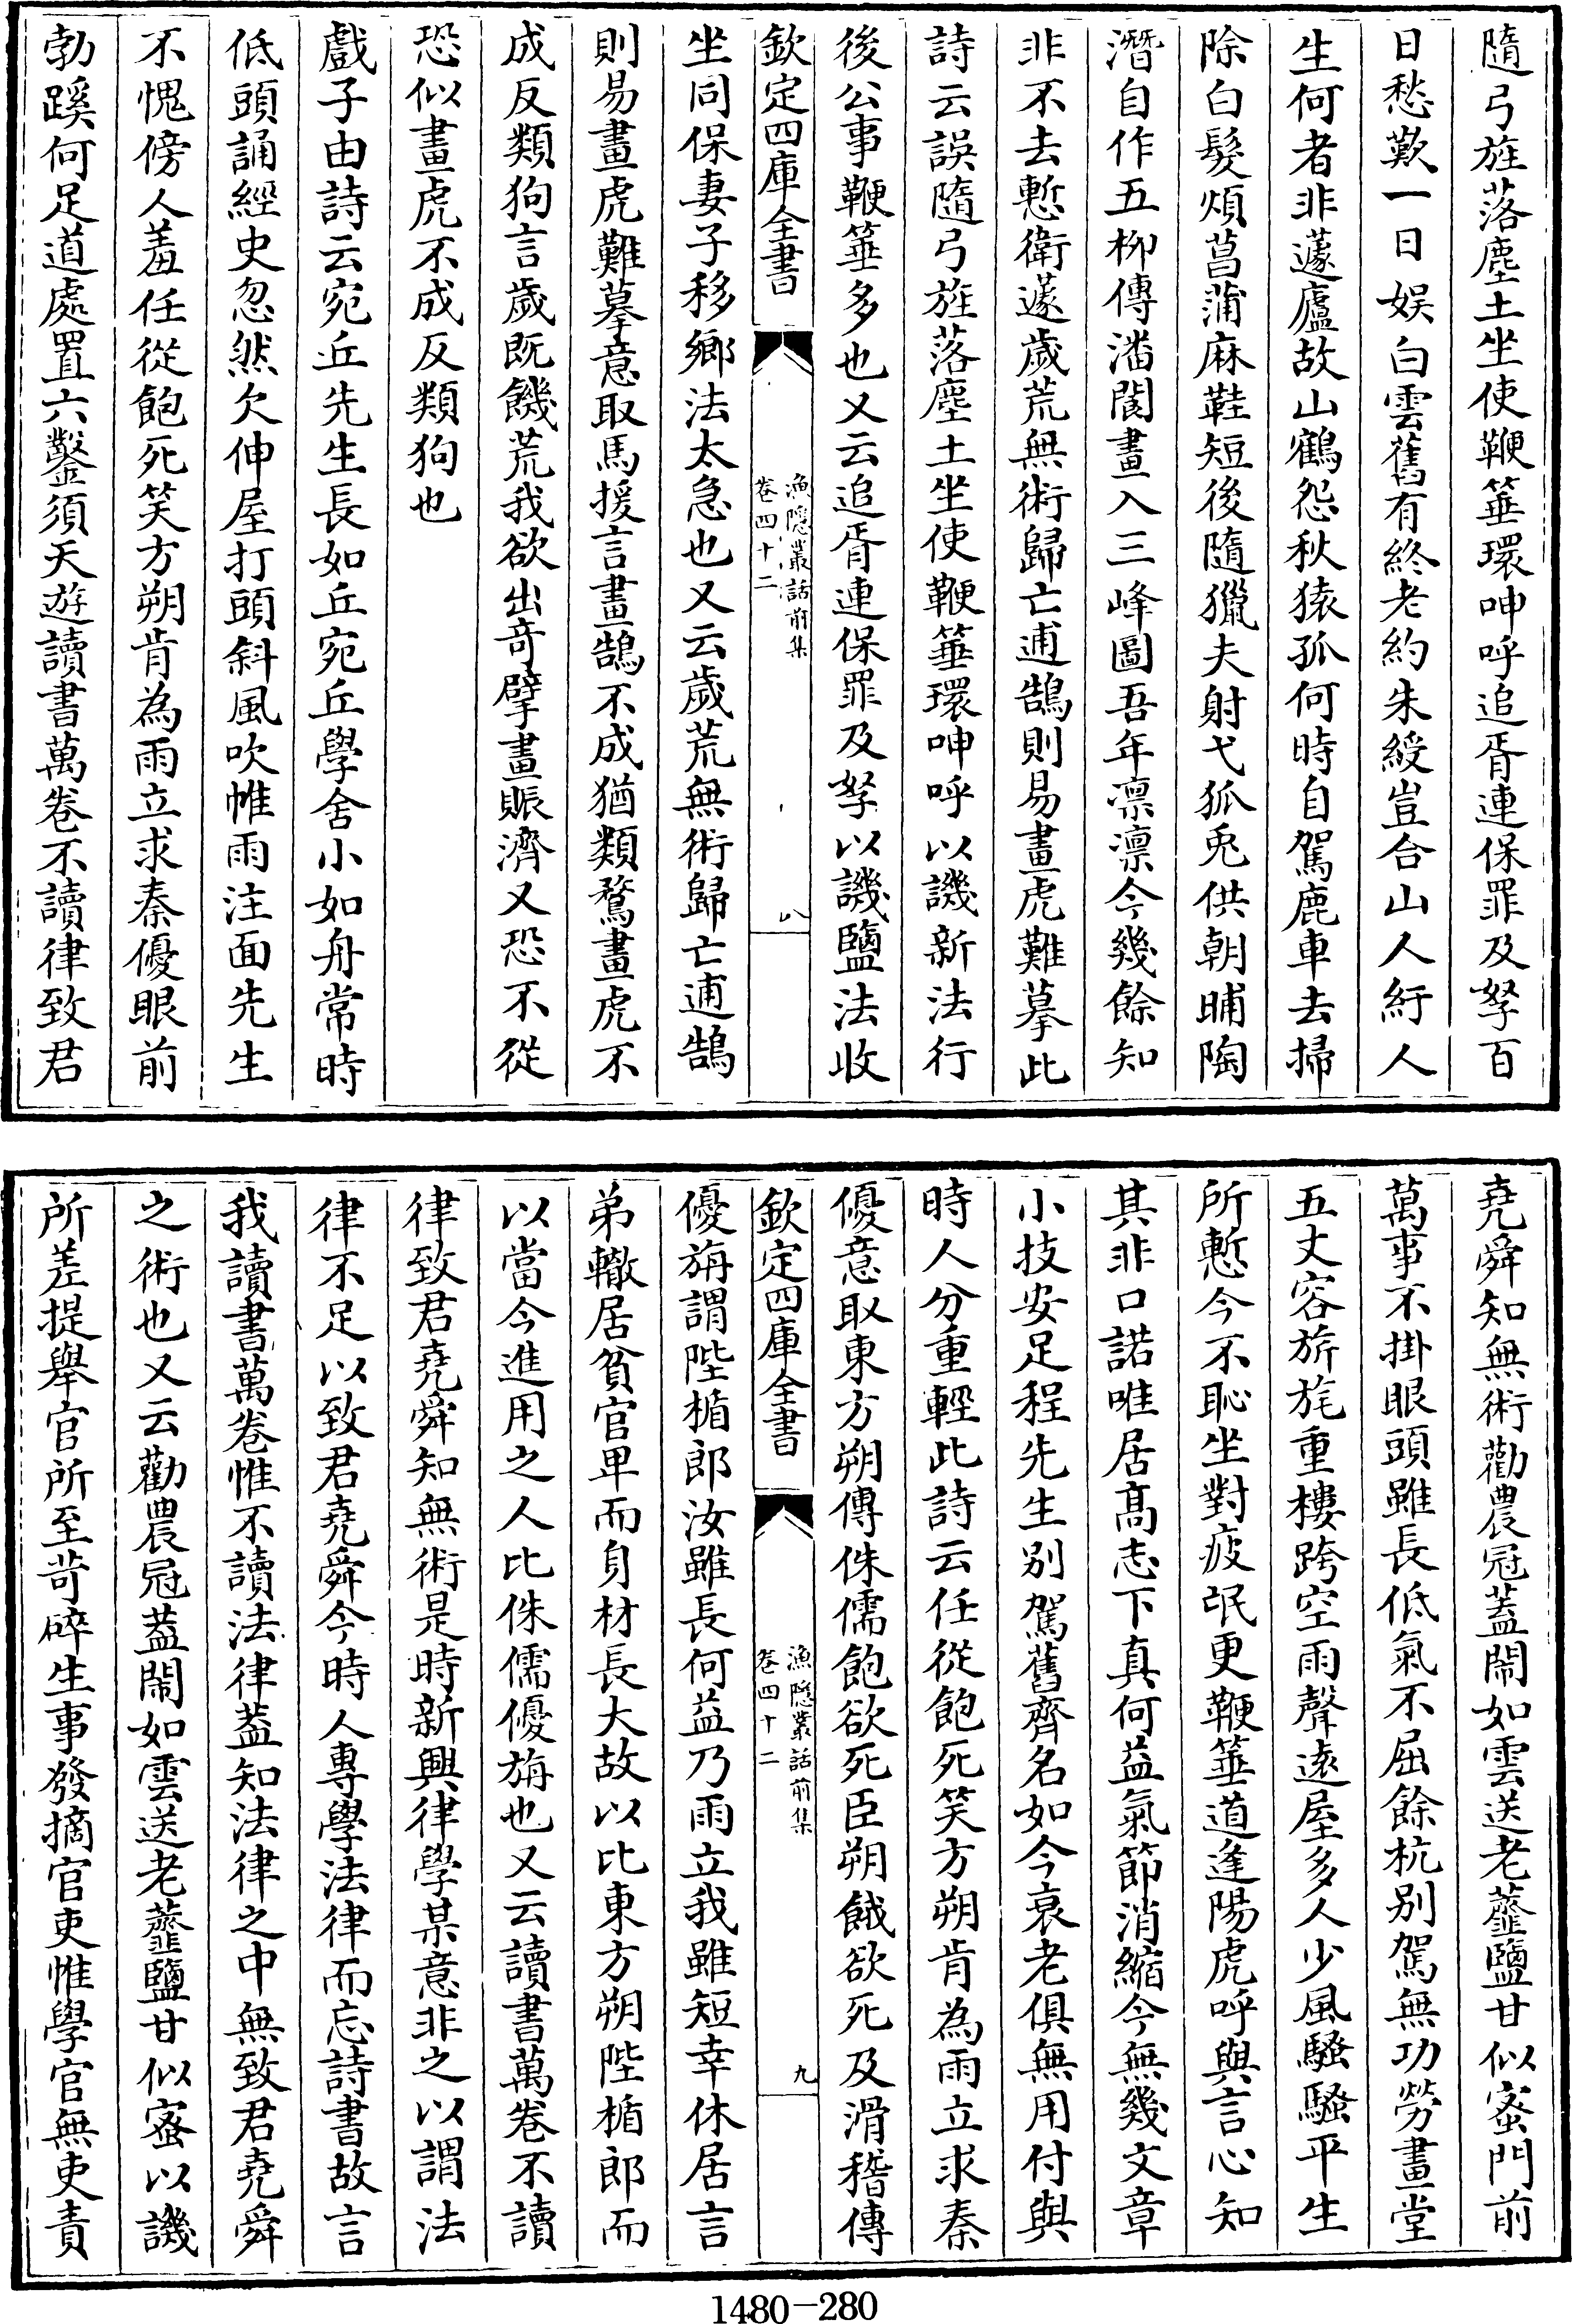 隨弓旌落塵土坐使鞭箠環呻呼追胥連保罪及孥百
日愁歎一日娛白雲舊有終老約朱綬豈合山人紆人
生何者非蘧廬故山鶴怨秋猿孤何時自駕鹿車去掃
除白髮煩菖蒲麻鞋短後隨獵夫射弋狐兎供朝晡陶
潛自作五柳傳潘閬畫入三峰圖吾年凛凛今幾餘知
非不去慙衛蘧歲荒無術歸亡逋鵠則易畫虎難摹此
詩云誤隨弓旌落塵土坐使鞭箠環呻呼以譏新法行
後公事鞭箠多也又云追胥連保罪及孥以譏鹽法收
欽定四庫全書
漁隱叢話前集
卷四十二
八
坐同保妻子移鄉法太急也又云歲荒無術歸亡逋鵠
則易畫虎難摹意取馬援言畫鵠不成猶類鶩畫虎不
成反類狗言歲既饑荒我欲出奇擘畫賑濟又恐不從
恐似畫虎不成反類狗也
戲子由詩云宛丘先生長如丘宛丘學舍小如舟常時
低頭誦經史忽然欠伸屋打頭斜風吹帷雨注面先生
不愧傍人羞任從飽死笑方朔肯為雨立求秦優眼前
勃蹊何足道處置六鑿須天遊讀書萬卷不讀律致君
堯舜知無術勸農冠蓋鬧如雲送老虀鹽甘似蜜門前
萬事不掛眼頭雖長低氣不屈餘杭别駕無功勞畫堂
五丈容旂旄重樓跨空雨聲遠屋多人少風騷騷平生
所慙今不恥坐對疲氓更鞭箠道逢陽虎呼與言心知
其非口諾唯居髙志下真何益氣節消縮今無幾文章
小技安足程先生别駕舊齊名如今衰老俱無用付與
時人分重輕此詩云任從飽死笑方朔肯為雨立求秦
優意取東方朔傳侏儒飽欲死臣朔餓欲死及滑稽傳
欽定四庫全書
漁隱叢話前集
卷四十二
九
優旃謂陛楯郎汝雖長何益乃雨立我雖短幸休居言
弟轍居貧官卑而身材長大故以比東方朔陛楯郎而
以當今進用之人比侏儒優旃也又云讀書萬卷不讀
律致君堯舜知無術是時新興律學某意非之以謂法
律不足以致君堯舜今時人專學法律而忘詩書故言
我讀書萬卷惟不讀法律葢知法律之中無致君堯舜
之術也又云勸農冠葢鬧如雲送老虀鹽甘似蜜以譏
所差提舉官所至苛碎生事發摘官吏惟學官無吏責
1480－280